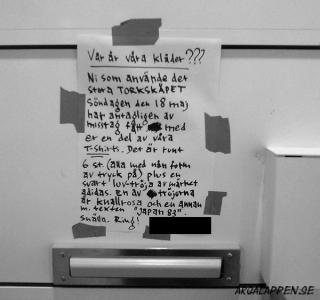 Var är våra kläder???
Ni som använde det
stora TORKSKÅPET
Söndagen den 18 maj
har antagligen av
misstag fått med
er en del av våra
T-shirts. Det är runt
6 st (alla med nån form
av tryck på) plus en
svart luv-tröja av märket
adidas. En av tröjorna
är knallrosa och en annan
m. texten "Japan 83".
Snälla, Ring!
ARGALAPPEN.SE